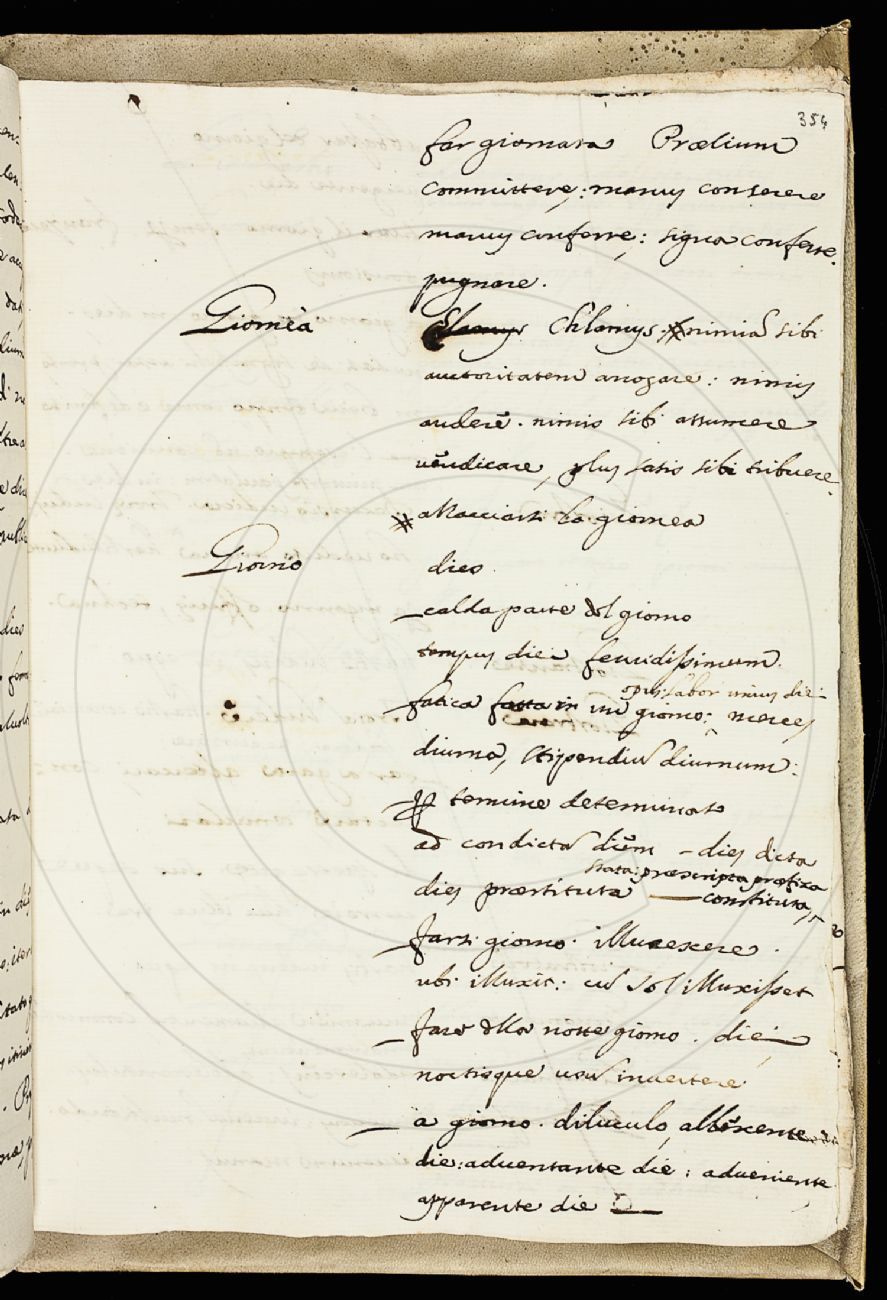 354
far giornata Prælium
committere; manus conserere
manus conferre: signa conferre.
pugnare.
Giornèa Chlamys Chlamys. nimiã sibi
auctoritatem arrogare: nimis
audere. nimis sibi assumere
vendicare, plus satis sibi tribuere.
allacciarsi la giornea
Giorno dies
calda parte del giorno
tempus diei fervidissimum.
opus: labor unius diei
fatica fatta in un giorno; merces
diurna, stipendiũ diurnum:
termine determinato
ad condictã diem - dies dicta
stata: præscripta præfixa
dies præstituta constituta
farsi giorno. illucescere.
ubi illuxit: cũ sol illuxisset
fare della notte giorno. diei
noctisque usũ invertere
a giorno. diluculo, albescente
die: adventante die: adveniente
apparente die